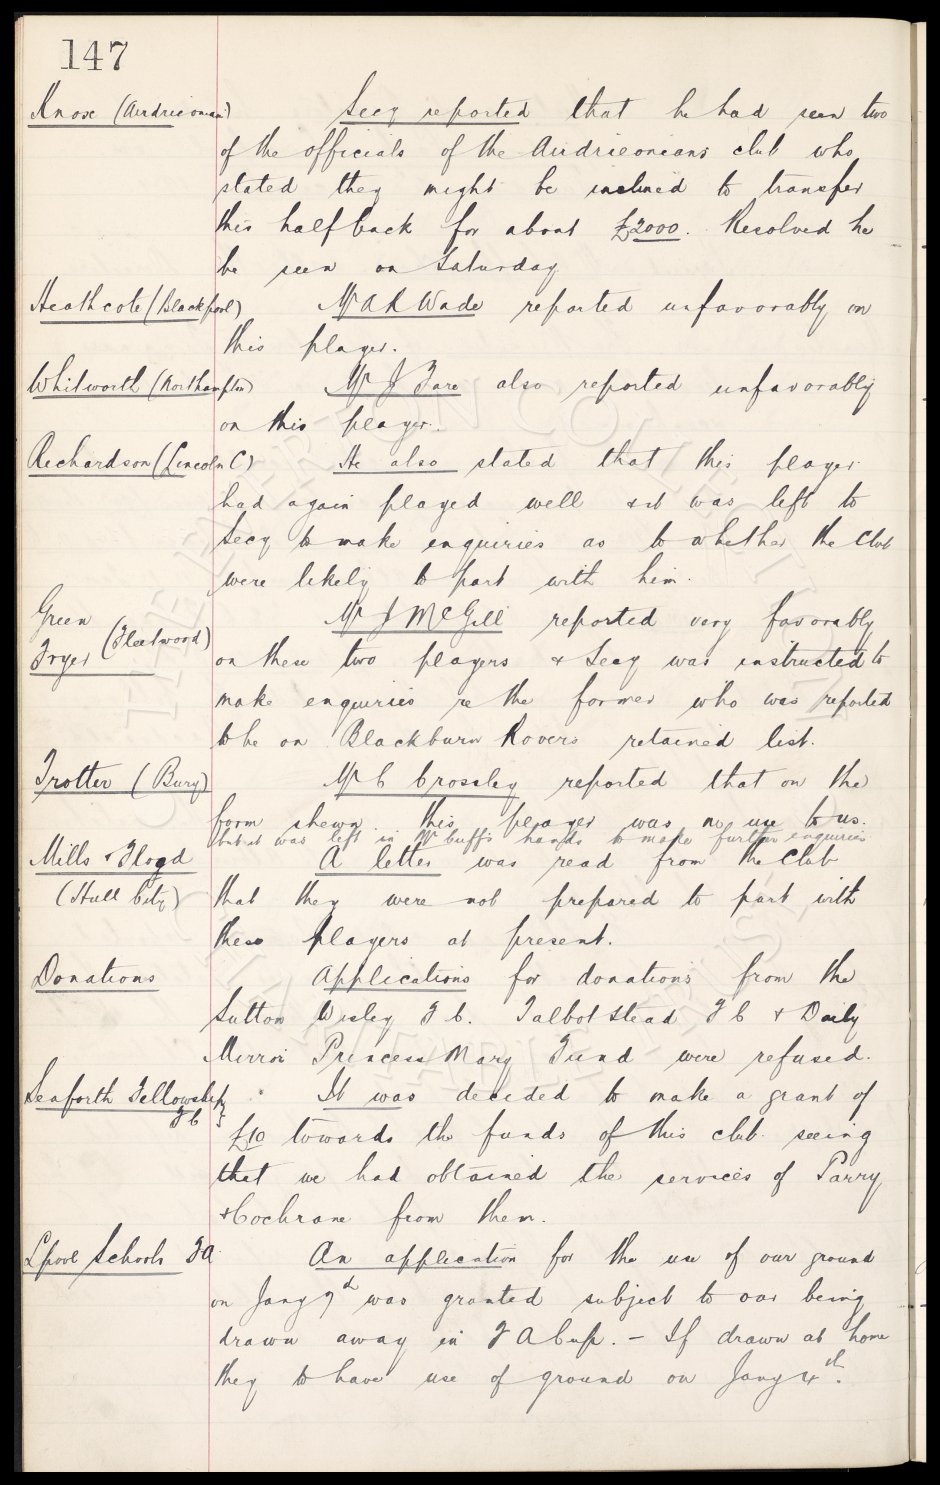 147
Knox (Airdrieonian)
Secy reported that he had seen two
of the officials of the Airdrieonians club who
stated they might be inclined to transfer
this half back for about £2000. Resolved he
be seen on Saturday
Heathcote (Blackpool)
Mr A R Wade reported unfavorably on
this player.
Whitworth (Northampton)
Mr J Fare also reported unfavorably
on this player.
Richardson (Lincoln C)
He also stated that this player
had again played well & it was left to
Secy to make enquiries as to whether the Club
were likely to part with him.
Green
Fryer (Fleetwood)
Mr J McGill reported very favorably
on these two players & Secy was instructed to
make enquiries re the former who was reported
to be on Blackburn Rovers retained list.
Trotter (Bury)
Mr C Crossley reported that on the
form shewn this player was no use to us.
but it was left in Mr Cuff's hands to make further enquiries
Mills & Floyd
(Hull City)
A letter was read from the Club
that they were not prepared to part with
these players at present.
Donations
Applications for donations from the
Sutton Wesley F C. Talbot Stead F C & Daily
Mirror Princess Mary Fund were refused.
Seaforth Fellowship
F C
It was decided to make a grant of
£10 towards the funds of this club seeing
that we had obtained the services of Parry
& Cochrane from them.
Lpool Schools F A
An application for the use of our ground
on Jany was granted subject to our being
drawn away in F A Cup. – If drawn at home
they to have use of ground on Jany 4th.
THE EVERTON COLLECTION
CHARITABLE TRUST